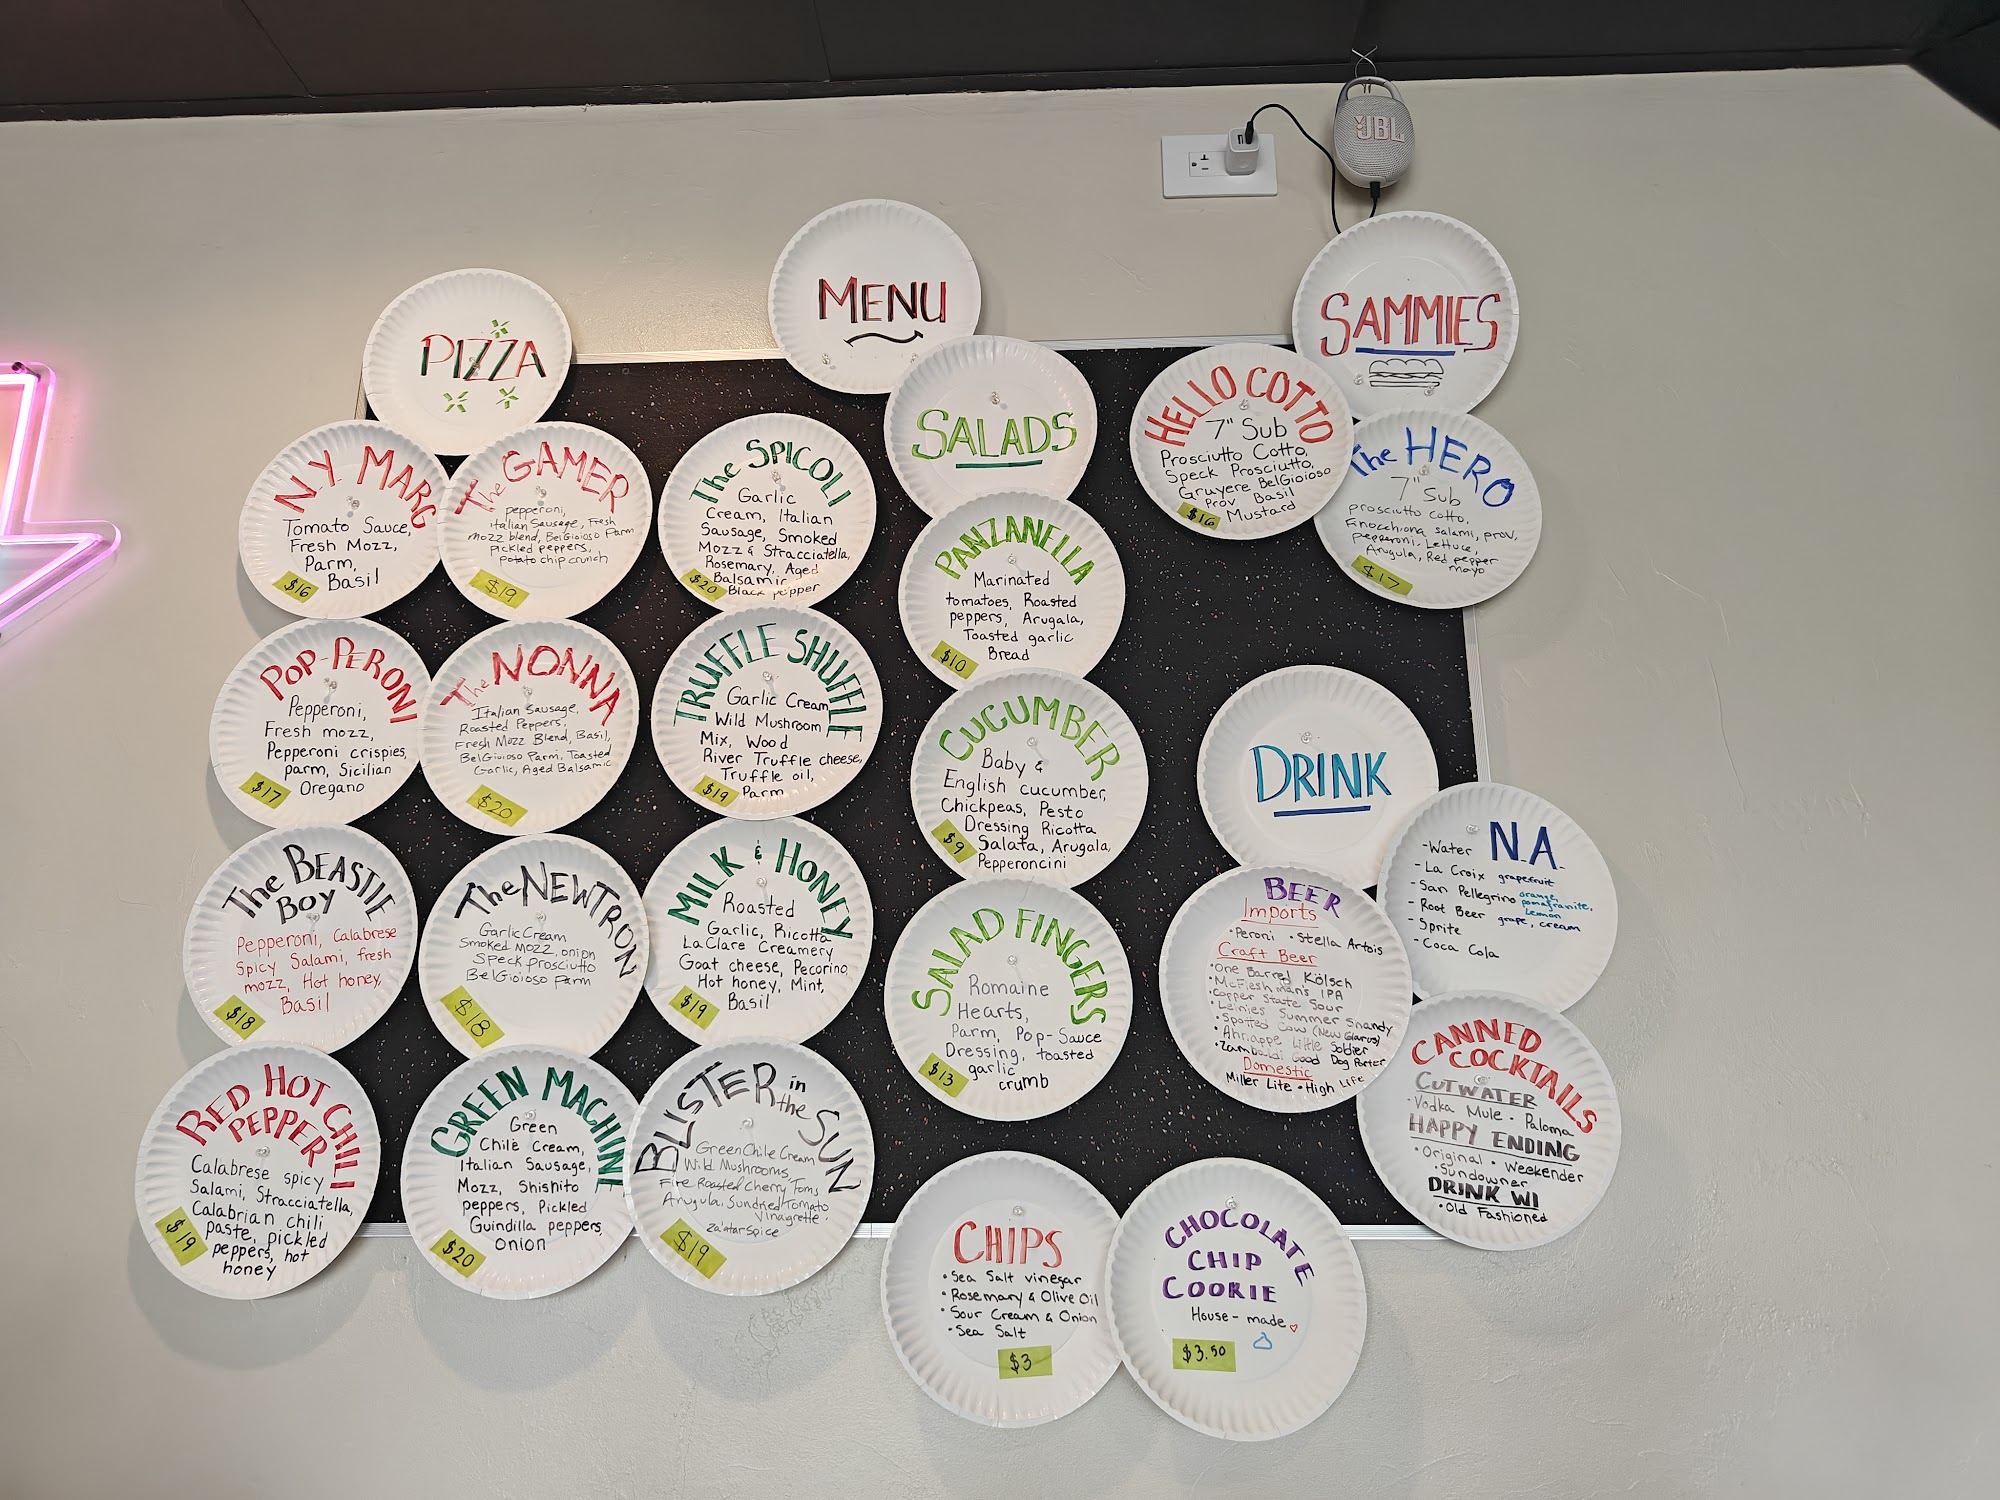 JBL
MENU
PIZZA
N.Y. MARG
Tomato Sauce,
Fresh Mozz,
Parm,
Basil
$16
The GAMER
pepperoni,
Italian Sausage, Fresh
mozz blend, BelGioioso Parm
pickled peppers,
potato chip crunch
$19
The SPICOLI
Garlic
Cream, Italian
Sausage, Smoked
Mozz & Stracciatella,
Rosemary, Aged
Balsamic
Black pepper
$20
POP-PERONI
Pepperoni,
Fresh mozz,
Pepperoni crispies,
parm, Sicilian
Oregano
$17
The NONNA
Italian Sausage,
Roasted Peppers,
Fresh Mozz Blend, Basil,
BelGioioso Parm, Toasted
Garlic, Aged Balsamic
$20
TRUFFLE SHUFFLE
Garlic Cream
Wild Mushroom
Mix, Wood
River Truffle cheese,
Truffle oil,
Parm
$19
The BEASTIE
BOY
Pepperoni, Calabrese
Spicy Salami, fresh
mozz, Hot honey,
Basil
$18
The NEWTRON
Garlic Cream
Smoked mozz, onion
Speck prosciutto
BelGioioso Parm
$18
MILK & HONEY
Roasted
Garlic, Ricotta
LaClare Creamery
Goat cheese, Pecorino,
Hot honey, Mint,
Basil
$19
RED HOT CHILI
PEPPER
Calabrese spicy
Salami, Stracciatella,
Calabrian chili
paste, pickled
peppers, hot
honey
$19
GREEN MACHINE
Green
Chile Cream,
Italian Sausage,
Mozz, Shishito
peppers, Pickled
Guindilla peppers,
onion
$20
BLISTER in the SUN
Green Chile Cream
Wild Mushrooms,
Fire Roasted Cherry Toms
Arugula, Sundried Tomato
Vinagrette.
Za'atar Spice
$19
SALADS
PANZANELLA
Marinated
tomatoes, Roasted
peppers, Arugala,
Toasted garlic
Bread
$10
CUCUMBER
Baby &
English cucumber,
Chickpeas, Pesto
Dressing Ricotta
Salata, Arugala,
Pepperoncini
$9
SALAD FINGERS
Romaine
Hearts,
Parm, Pop-Sauce
Dressing, toasted
garlic
crumb
$13
SAMMIES
HELLO COTTO
7" Sub
Prosciutto Cotto,
Speck Prosciutto,
Gruyere BelGioioso
Prov Basil
Mustard
$16
The HERO
7" Sub
prosciutto cotto,
Finocchiona, salami, prov,
pepperoni, Lettuce,
Arugula, Red pepper
mayo
$17
DRINK
N.A.
-Water
-La Croix grapefruit
-San Pellegrino orange, pomagranite, Lemon
-Root Beer grape, cream
-Sprite
-Coca Cola
BEER
Imports
•Peroni •Stella Artois
Craft Beer
•One Barrel Kölsch
•McFleshman's IPA
•Copper State Sour
•Leinies Summer Shandy
•Spotted Cow (New Glarus)
•Ahnappe Little Soldier
•Zambaldi Good Dog Porter
Domestic
Miller Lite •High Life
CANNED
COCKTAILS
CUTWATER
•Vodka Mule • Paloma
HAPPY ENDING
•Original • Weekender
•Sundowner
DRINK WI
•Old Fashioned
CHIPS
•Sea Salt vinegar
•Rosemary & Olive Oil
•Sour Cream & Onion
•Sea Salt
$3
CHOCOLATE
CHIP
COOKIE
House-made
$3.50